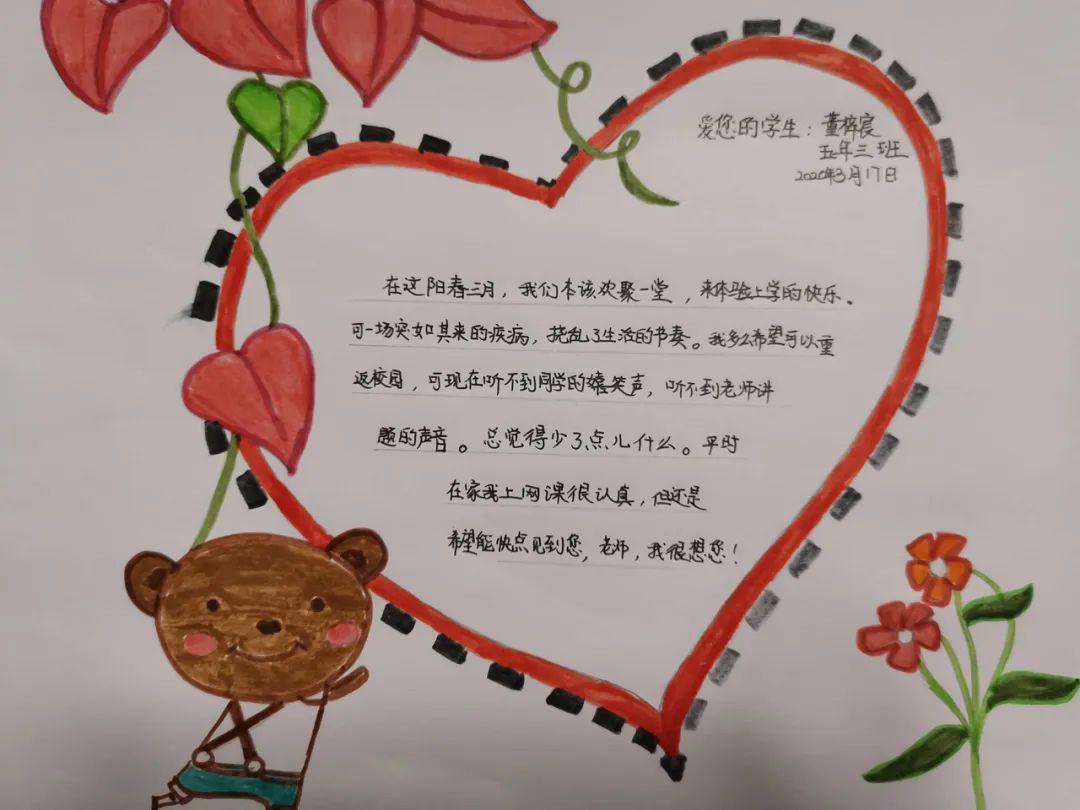 爱您的学生：董梓宸
五年三班
2020年3月17日
在这阳春三月，我们本该欢聚一堂，来体验上学的快乐。
可一场突如其来的疾病，挠乱了生活的节奏。我多么希望可以重
返校园，可现在听不到同学的嬉笑声，听不到老师讲
题的声音。总觉得少了点儿什么。平时
在家我上网课很认真，但还是
希望能快点见到您，老师，我很想您！